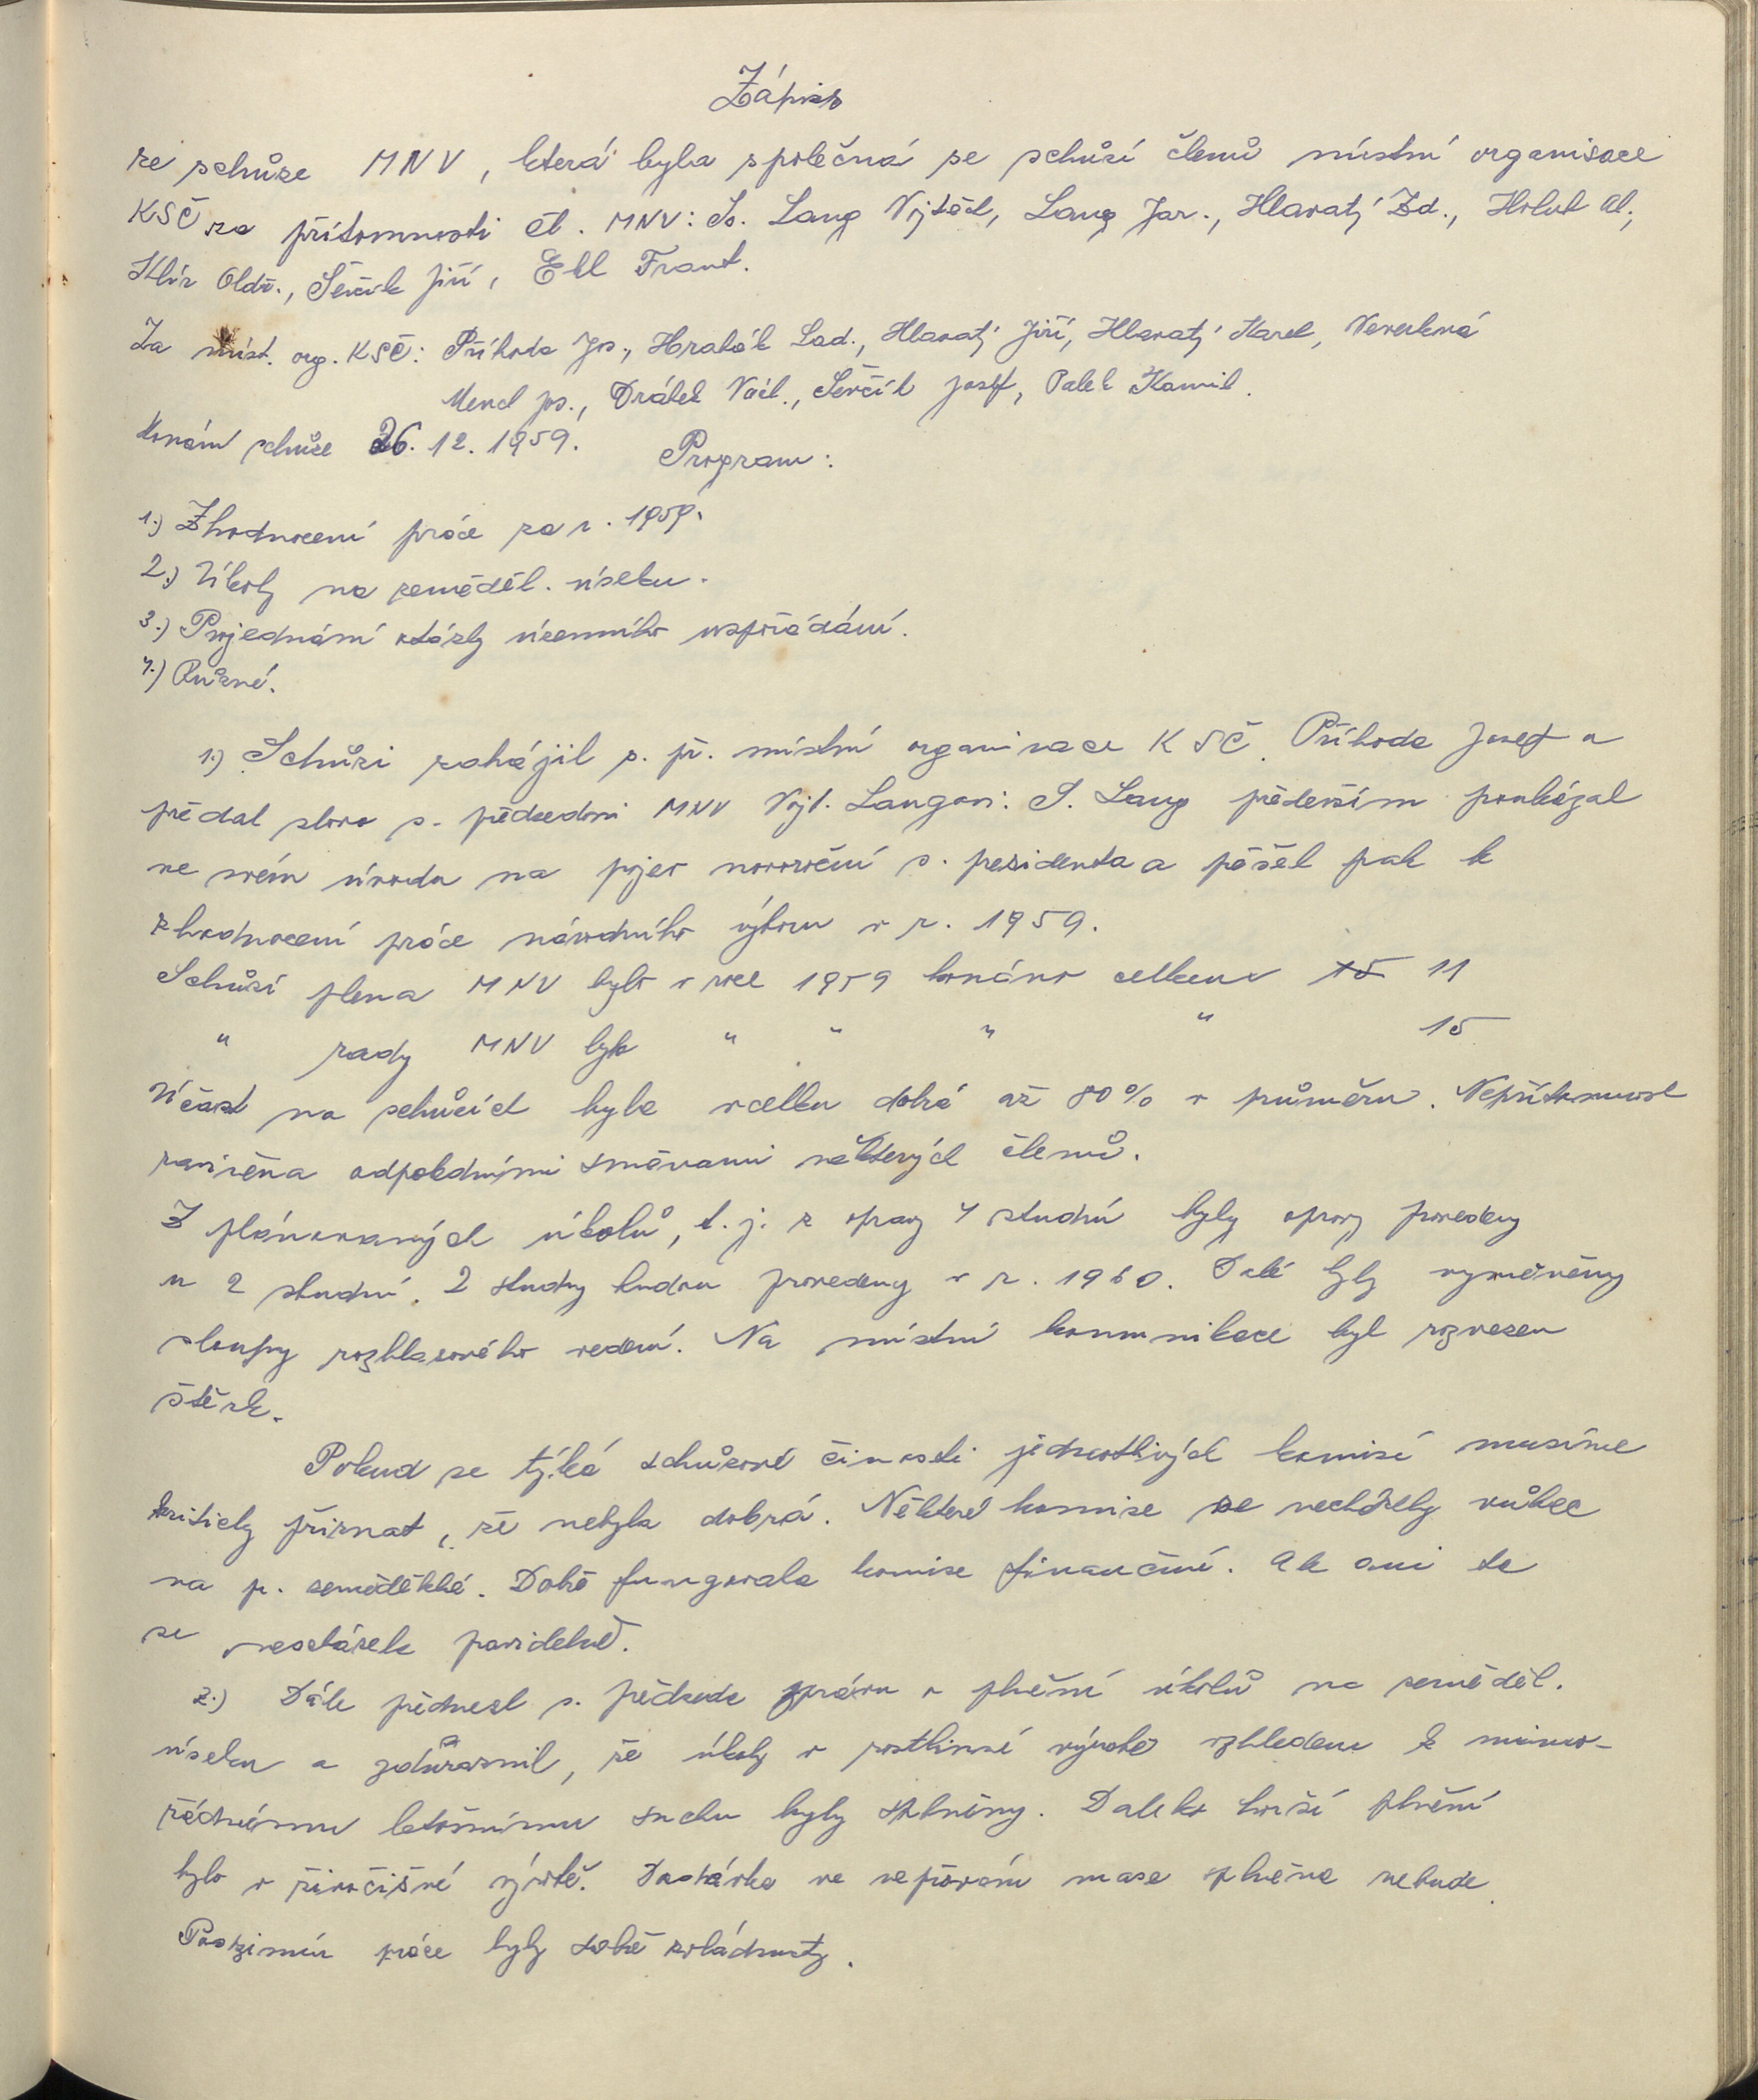 Zápis
ze schůze MNV, která byla společná se schůzí členů místní organisace
KSČ za přítomnosti čl. MNV: Ss. Lang Vojtěch, Lang Jar., Hlavatý Zd., Holub Al.,
Klír Oldř., Ševčík Jiří, Ekl Frant.
Za míst. org. KSČ: Příhoda Jos., Hrabák Lad., Hlavatý Jiří, Hlavatý Karel,
Mencl Jos., Drábek Václ., Ševčík Josef, Palek Kamil.
Konání schůze 26. 12. 1959. Program:
1.) Zhodnocení práce za r. 1959.
2.) Úkoly na zeměděl. úseku.
3.) Projednání otázky územního uspořádání.
4.) Různé.
1.) Schůzi zahájil s. př. místní organisace KSČ. Příhoda Josef a
předal slovo s. předsedovi MNV Vojt. Langovi. S. Lang především poukázal
ve svém úvodu na projev novoroční s. presidenta a přešel pak k
zhodnocení práce národního výboru v r. 1959.
Schůzí plena MNV bylo v roce 1959 konáno celkem 15 11
" rady MNV bylo " " " " 15
Účast na schůzích byla vcelku dobrá až 80% v průměru. Nepřítomnost
zaviněna odpoledními směnami některých členů.
Z plánovaných úkolů, t. j. z opravy 4 studní byly opravy provedeny
u 2 studní. 2 studny budou provedeny v r. 1960. Dále byly vyměněny
sloupy rozhlasového vedení. Na místní komunikace byl rozvezen
štěrk.
Pokud se týká schůzové činosti jednotlivých komisí musíme
kriticky přiznat, že nebyla dobrá. Některé komise se nescházely vůbec
na p. zemědělská. Dobře fungovala komise finanční. Ale ani ta
se nescházela pravidelně.
2.) Dále přednesl s. předseda zprávu o plnění úkolů na zeměděl.
úseku a zdůraznil, že úkoly v rostlinné výrobě vzhledem k mimo-
řádnému letošnímu suchu byly splněny. Daleko horší plnění
bylo v živočišné výrobě. Dodávka ve vepřovém mase splněna nebude.
Podzimní práce byly dobře zvládnuty.